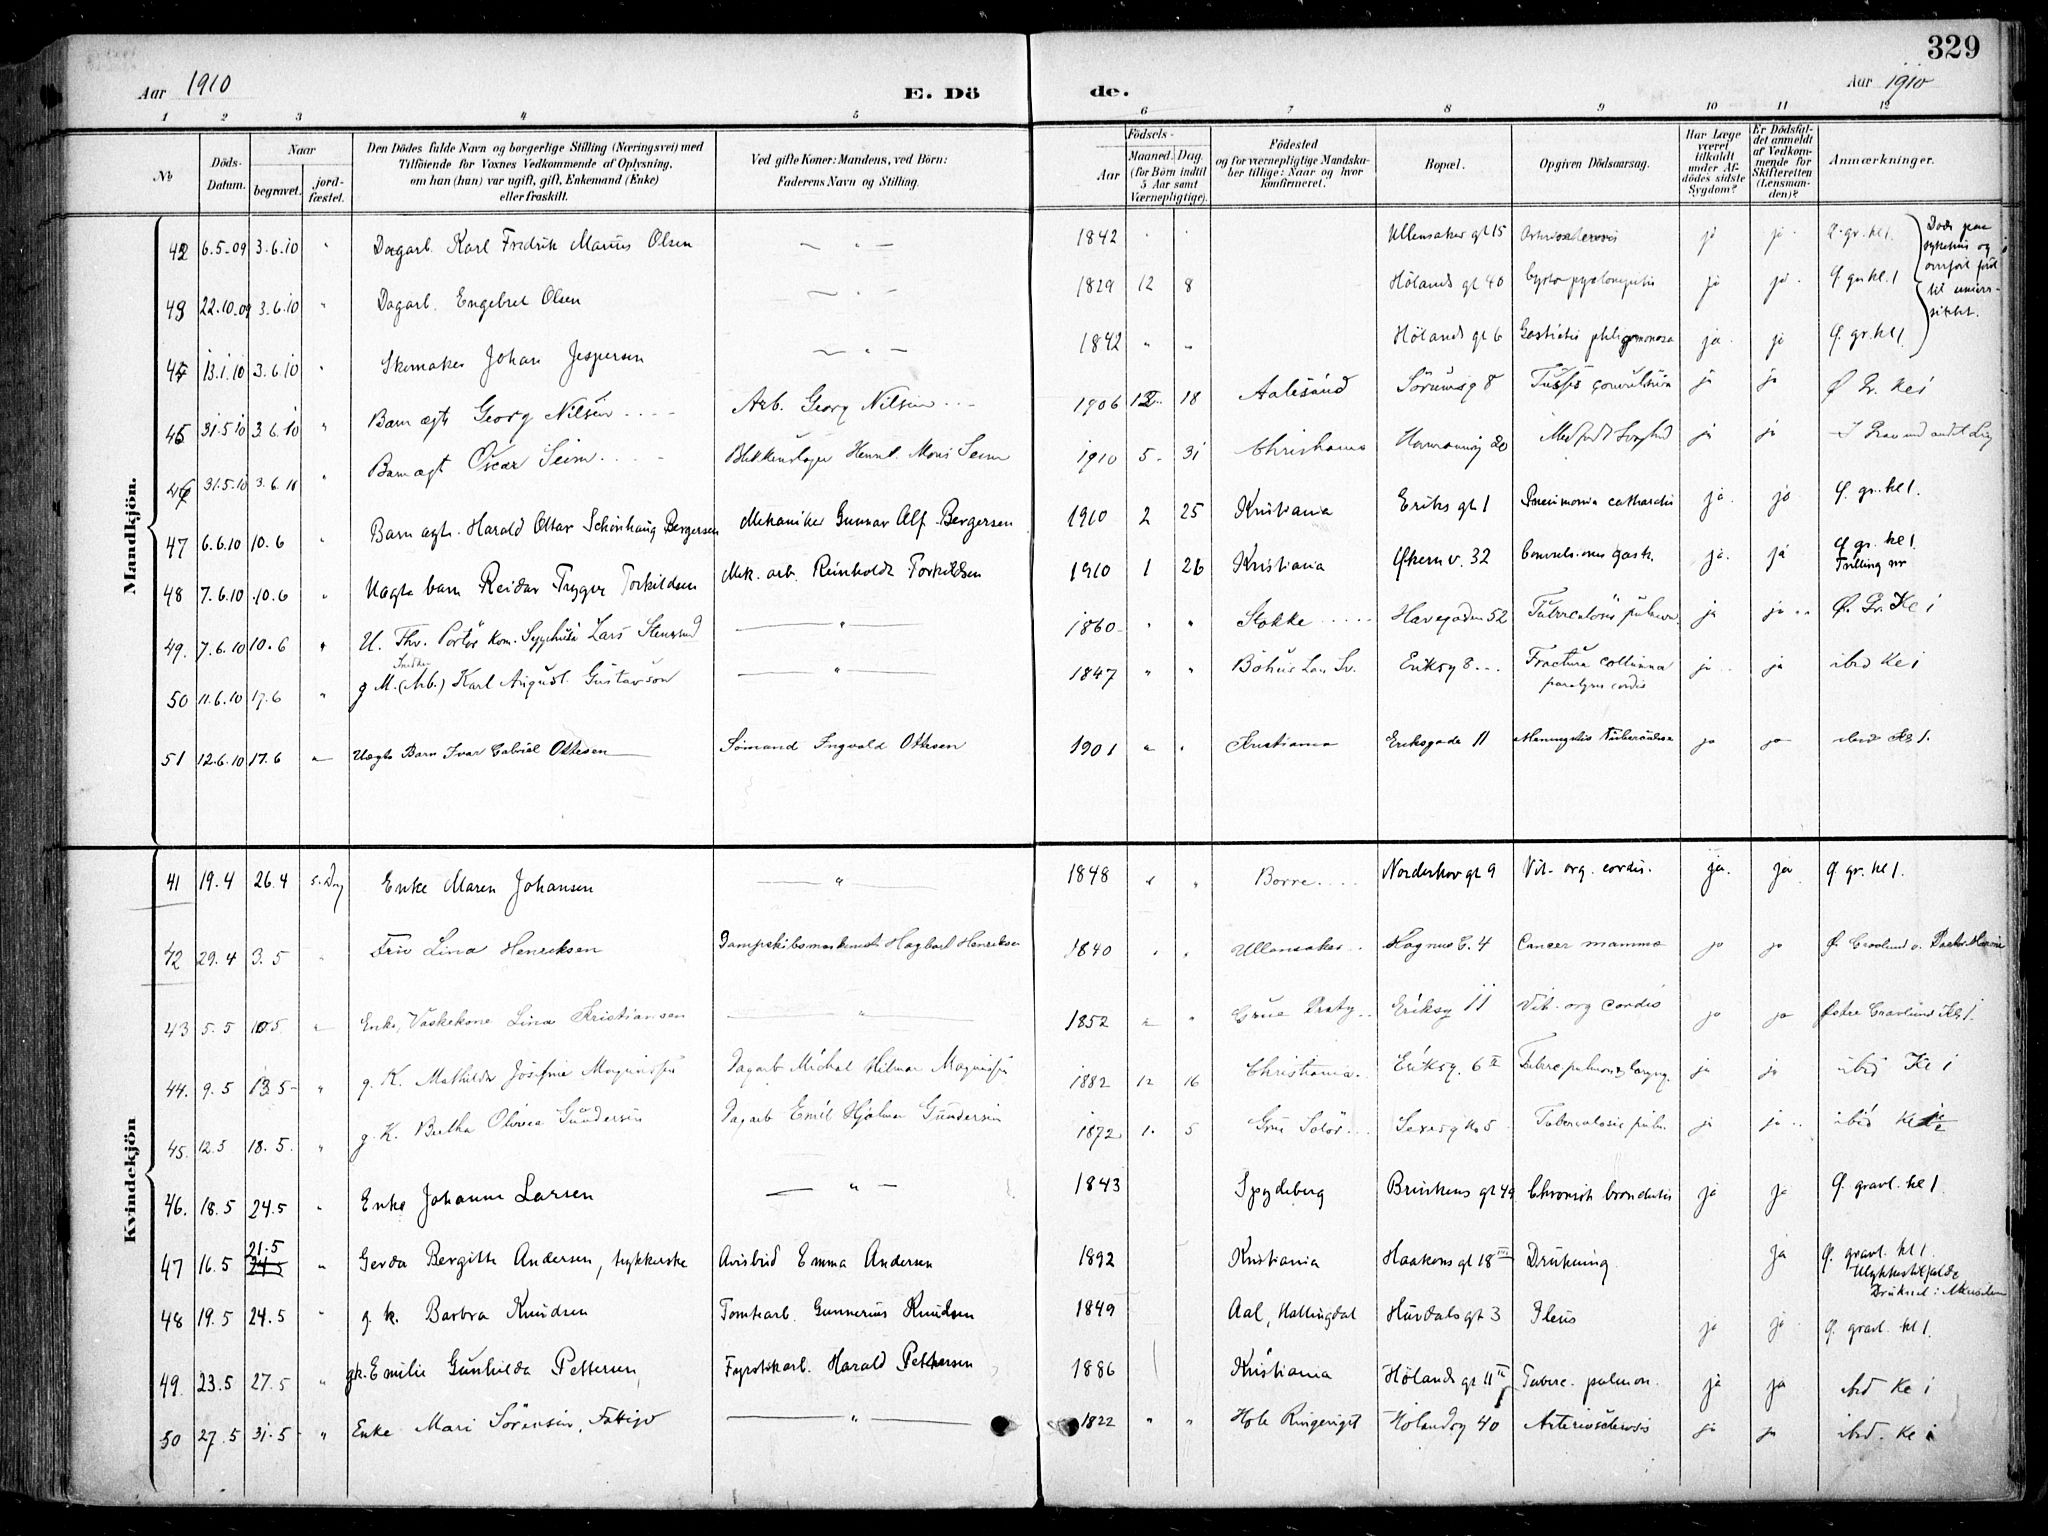 329
Aar 1910
E. Dö
de.
Aar 1910
1 2 3 4 5 6 7 8 9 10 11 12
No
Döds-Datum.
Naar
begravet.
jord-fæstet.
Den Dödes fulde Navn og borgerlige Stilling (Næringsvei) med
Tilföiende for Voxnes Vedkommende af Oplysning,
om han (hun) var ugift, gift, Enkemand (Enke)
eller fraskilt.
Ved gifte Koner: Mandens, ved Börn:
Faderens Navn og Stilling.
Födsels-
Aar
Maaned. Dag.
(for Börn indtil
5 Aar samt
Værnepligtige).
Födested
og for værnepligtige Mandska-
ber tillige: Naar og hvor
konfirmeret.
Bopæl.
Opgiven Dödsaarsag.
Har Læge
været
tilkaldt
under Af-
dödes sidste
Sygdom?
Er Dödsfal-
det anmeldt
af Vedkom-
mende for
Skifteretten
(Lensman-
den)?
Anmærkninger.
Mandkjön.
42 6.5.09 3.6.10 " Dagarb. Karl Fredrik Marius Olsen — " — 1842 " " Ullensaker gt 15 ja ja Ø. gr. kl 1.
43 22.10.09 3.6.10 " Dagarb. Engebret Olsen — " — 1829 12 8 Hölands gt 40 ja ja Ø gr. kl. 1
Döde paa sykehus og
til univer-
sitetet.
44 13.1.10 3.6.10 " Skomaker Johan Jespersen — " — 1842 " " Hölands gt 6 ja ja Ø. gr. kl 1.
45 31.5.10 3.6.10 " Barn ægt Georg Nilsen Arb. Georg Nilsen 1906 12 18 Aalesund Sörumsg 8 Tussis convulsiva ja ja Ø Gr. Kl 1
46 31.5.10 3.6.10 " Barn ægt Oscar Seim Blikkenslager Mons Seim 1910 5 31 Christiania 20 ja ja
47 6.6.10 10.6 " Barn ægte. Harald Ottar Schönhaug Bergersen Mekaniker Gunnar Alf Bergersen 1910 2 25 Kristiania Eriks gt 1 Pneimonia ja ja Ø. gr. kl 1.
48 7.6.10 10.6 " Uægte barn Reidar Trygve Torkildsen Mek. arb. Reinholdt Torkildsen 1910 1 26 Kristiania Økern v. 32 ja ja Ø gr. kl 1.
Tvilling nr
49. 7.6.10 10.6 " U. Thv. Portör Kom. Sygehus Lars Stensrud — " — 1860 " " Stokke Havegaden 52 Tuberculosis pulmon ja ja Ø. Gr. Kl 1
50 11.6.10 17.6 " g M. (Arb.) Snedker Karl August Gustavson — " — 1847 " " Bohus Len Sv. Eriksg 8 Fractura
paralysis cordis ja ja ibid Kl 1
51 12.6.10 17.6 " Uægte Barn Ivar Gabriel Ottesen Sömand Ingvald Ottesen 1901 " " Kristiania Eriksgade 11 Meningitis Tuberculosa ja ja ibid Kl 1.
Kvindekjön
41 19.4 26.4 s. Dag Enke Maren Johansen — " — 1848 " " Borre Norderhov gt 9 Vit. org. cordis. ja. ja Ø. gr. kl 1.
42 29.4 3.5 " Fru Lina Henriksen Dampskibsmaskinist Hagbart Henriksen 1840 " " Ullensaker Magnus G. 4 Cancer mamma ja ja
43 5.5 10.5 " Enke, Vaskekone Lina Kristiansen — " — 1852 " " Grue Eriksg 11 Vit. org cordis ja ja Østre Gravlund Kl 1.
44. 9.5 13.5 " g. K. Mathilde Josefine Magnussen Dagarb Michal Hilmar Magnussen 1882 12 16 Christiania Eriksg. 6 II Tuberc pulmon & laryng. ja ja ibid Kl 1
45. 12.5 18.5. " g. K. Bertha Olivia Gundersen Dagarb Emil Hjalmar Gundersen 1872 1. 5 Grue Solör Sexesg No 5 Tuberculosis pulm. ja ja ibid Kl
46. 18.5 24.5 " Enke Johanne Larsen — " — 1843 Spydeberg Brinkens gt 49 Chronisk bronchitis ja ja Ø. gravl. kl 1.
47 16.5 21.5 24.5 " Gerda Bergitte Andersen, trykkerske Avisbud Emma Andersen 1892 Kristiania Haakons gt 18 III Drukning ja Ø. gravl. kl 1.
Ulykkestilfælde
Druknet i Akerselven
48 19.5 24.5 " g. k. Barbra Knudsen Tomtearb. Gunnerius Knudsen 1849 Aal, Hallingdal Hurdals gt 3 Ileus ja ja Ø. gravl. kl 1.
49. 23.5 27.5 " gk. Emilie Gunhilda Pettersen Fyrstikarb. Harald Pettersen 1886 Kristiania Hölands gt 11 II Tuberc. pulmon. ja ja ibid Kl 1
50 27.5 31.5 " Enke Mari Sörensen, Fattigv — " — 1822 " " Hole Ringeriget Hölandsg 40 Arteriosclerosis ja ja ibid. Kl 1